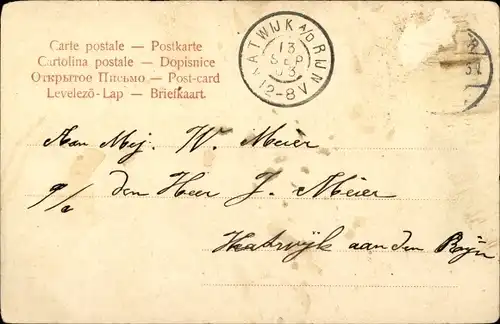 Carte postale — Postkarte
Cartolina postale — Dopisnice
Открытое Письмо — Post-card
Levelező-Lap — Briefkaart.
KATWIJK A/D RIJN
13
SEP
03
12-8 V
Aan Mej. W. Meier
p/a den Heer J. Meier
Katwijk aan den Rijn